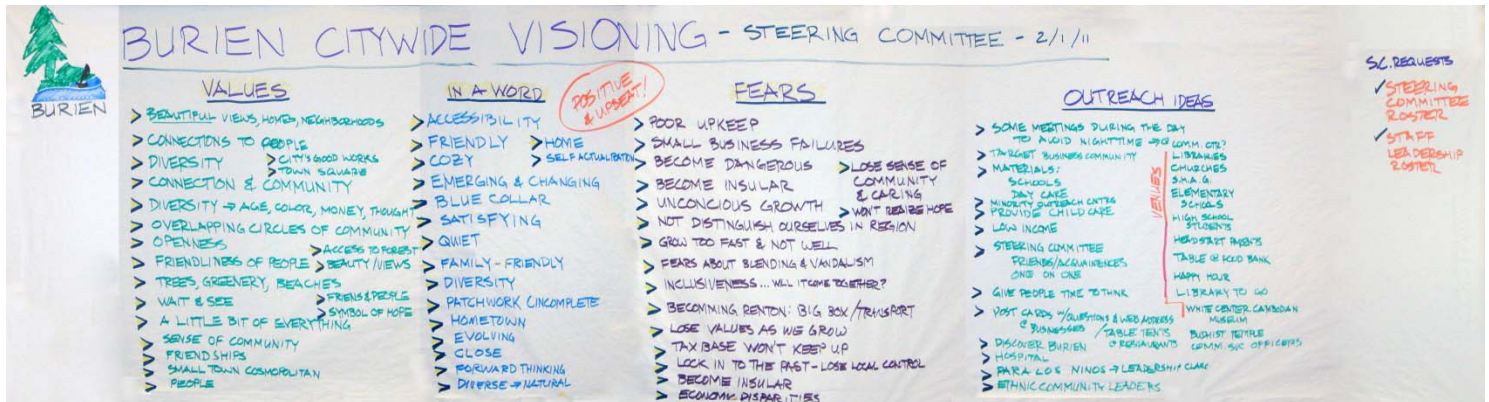 BURIEN CITYWIDE VISIONING - STEERING COMMITTEE - 2/1/11
BURIEN
VALUES
> BEAUTIFUL VIEWS, HOMES, NEIGHBORHOODS
> CONNECTIONS TO PEOPLE
> DIVERSITY
> CITY'S GOOD WORKS
> TOWN SQUARE
> CONNECTION & COMMUNITY
> DIVERSITY → AGE, COLOR, MONEY, THOUGHT
> OVERLAPPING CIRCLES OF COMMUNITY
> OPENNESS
> ACCESS TO FOREST
> FRIENDLINESS OF PEOPLE
> BEAUTY/VIEWS
> TREES, GREENERY, BEACHES
> WAIT & SEE
> FRIENS & PEOPLE
> SYMBOL OF HOPE
> A LITTLE BIT OF EVERYTHING
> SENSE OF COMMUNITY
> FRIENDSHIPS
> SMALL TOWN COSMOPOLITAN
> PEOPLE
IN A WORD
POSITIVE
& UPBEAT!
> ACCESSIBILITY
> FRIENDLY
> HOME
> COZY
> SELF ACTUALIZATION
> EMERGING & CHANGING
> BLUE COLLAR
> SATISFYING
> QUIET
> FAMILY-FRIENDLY
> DIVERSITY
> PATCHWORK (INCOMPLETE
> HOMETOWN
> EVOLVING
> CLOSE
> FORWARD THINKING
> DIVERSE → NATURAL
FEARS
> POOR UPKEEP
> SMALL BUSINESS FAILURES
> BECOME DANGEROUS
> LOSE SENSE OF
COMMUNITY
& CARING
> BECOME INSULAR
> UNCONCIOUS GROWTH
> WON'T REALIZE HOPE
> NOT DISTINGUISH OURSELVES IN REGION
> GROW TOO FAST & NOT WELL
> FEARS ABOUT BLENDING & VANDALISM
> INCLUSIVENESS... WILL IT COME TOGETHER?
> BECOMMING RENTON: BIG BOX/TRANSPORT
> LOSE VALUES AS WE GROW
> TAX BASE WON'T KEEP UP
> LOCK IN TO THE PAST - LOSE LOCAL CONTROL
> BECOME INSULAR
> ECONOMY DISPARITIES
OUTREACH IDEAS
> SOME MEETINGS DURING THE DAY
TO AVOID NIGHTTIME
> TARGET BUSINESS COMMUNITY
> MATERIALS:
SCHOOLS
DAY CARE
> MINORITY OUTREACH CNTRS
> PROVIDE CHILD CARE
> LOW INCOME
> STEERING COMMITTEE
FRIENDS/ACQUAINENCES
ONE ON ONE
> GIVE PEOPLE TIME TO THINK
> POST CARDS W/QUESTIONS & WEB ADDRESS
@ BUSINESSES / TABLE TENTS
@ RESTAURANTS
> DISCOVER BURIEN
> HOSPITAL
> PARA LOS NINOS → LEADERSHIP
> ETHNIC COMMUNITY LEADERS
VENUES
COMM. CTR?
LIBRARIES
CHURCHES
S.H.A.G.
ELEMENTARY
SCHOOLS
HIGH SCHOOL
STUDENTS
HEADSTART PARENTS
TABLE @ FOOD BANK
HAPPY HOUR
LIBRARY TO GO
WHITE CENTER CAMBODIAN
MUSEUM
BUDHIST TEMPLE
COMM. SVC OFFICERS
S.C. REQUESTS
✓ STEERING
COMMITTEE
ROSTER
✓ STAFF
LEADERSHIP
ROSTER